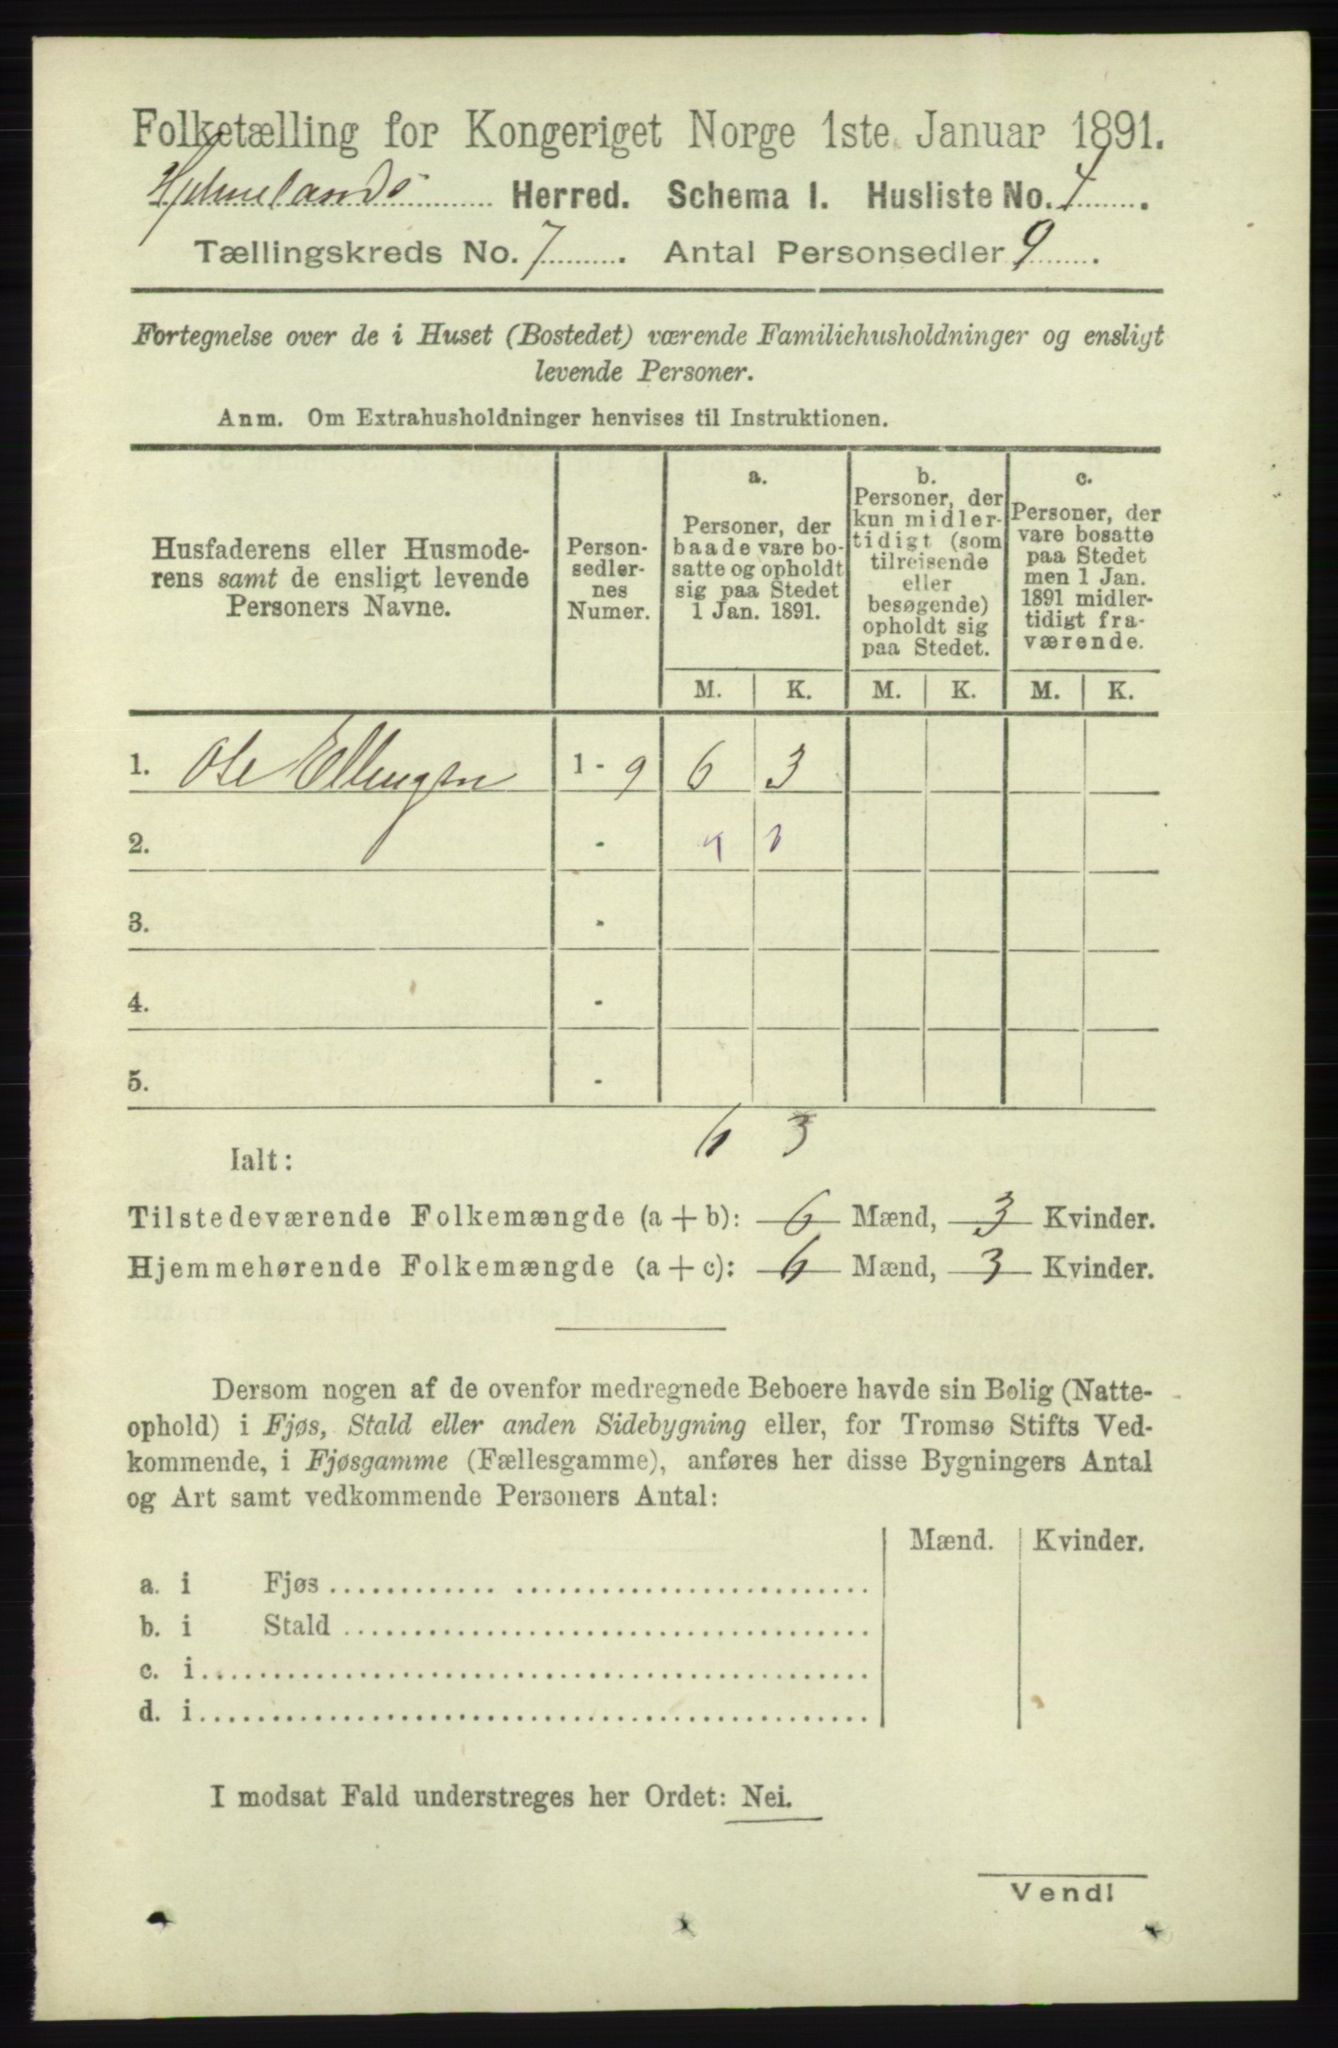 Folketælling for Kongeriget Norge 1ste Januar 1891.
Hjelmelands Herred. Schema I. Husliste No. 4.
Tællingskreds No. 7. Antal Personsedler 9.
Fortegnelse over de i Huset (Bostedet) værende Familiehusholdninger og ensligt
levende Personer.
Anm. Om Extrahusholdninger henvises til Instruktionen.
Husfaderens eller Husmode-
rens samt de ensligt levende
Personers Navne.
Person-
sedler-
nes
Numer.
a.
Personer, der
baade vare bo-
satte og opholdt
sig paa Stedet
1 Jan. 1891.
b.
Personer, der
kun midler-
tidigt (som
tilreisende
eller
besøgende)
opholdt sig
paa Stedet.
c.
Personer, der
vare bosatte
paa Stedet
men 1 Jan.
1891 midler-
tidigt fra-
værende.
M. K. M. K. M. K.
1. Ole Ellingsen 1 - 9 6 3
2. -
3. -
4. -
5. -
6 3
Ialt:
Tilstedeværende Folkemængde (a + b): 6 Mænd, 3 Kvinder.
Hjemmehørende Folkemængde (a + c): 6 Mænd, 3 Kvinder.
Dersom nogen af de ovenfor medregnede Beboere havde sin Bolig (Natte-
ophold) i Fjøs, Stald eller anden Sidebygning eller, for Tromsø Stifts Ved-
kommende, i Fjøsgamme (Fællesgamme), anføres her disse Bygningers Antal
og Art samt vedkommende Personers Antal:
Mænd. Kvinder.
a. i Fjøs
b. i Stald
c. i
d. i
I modsat Fald understreges her Ordet: Nei.
Vend!